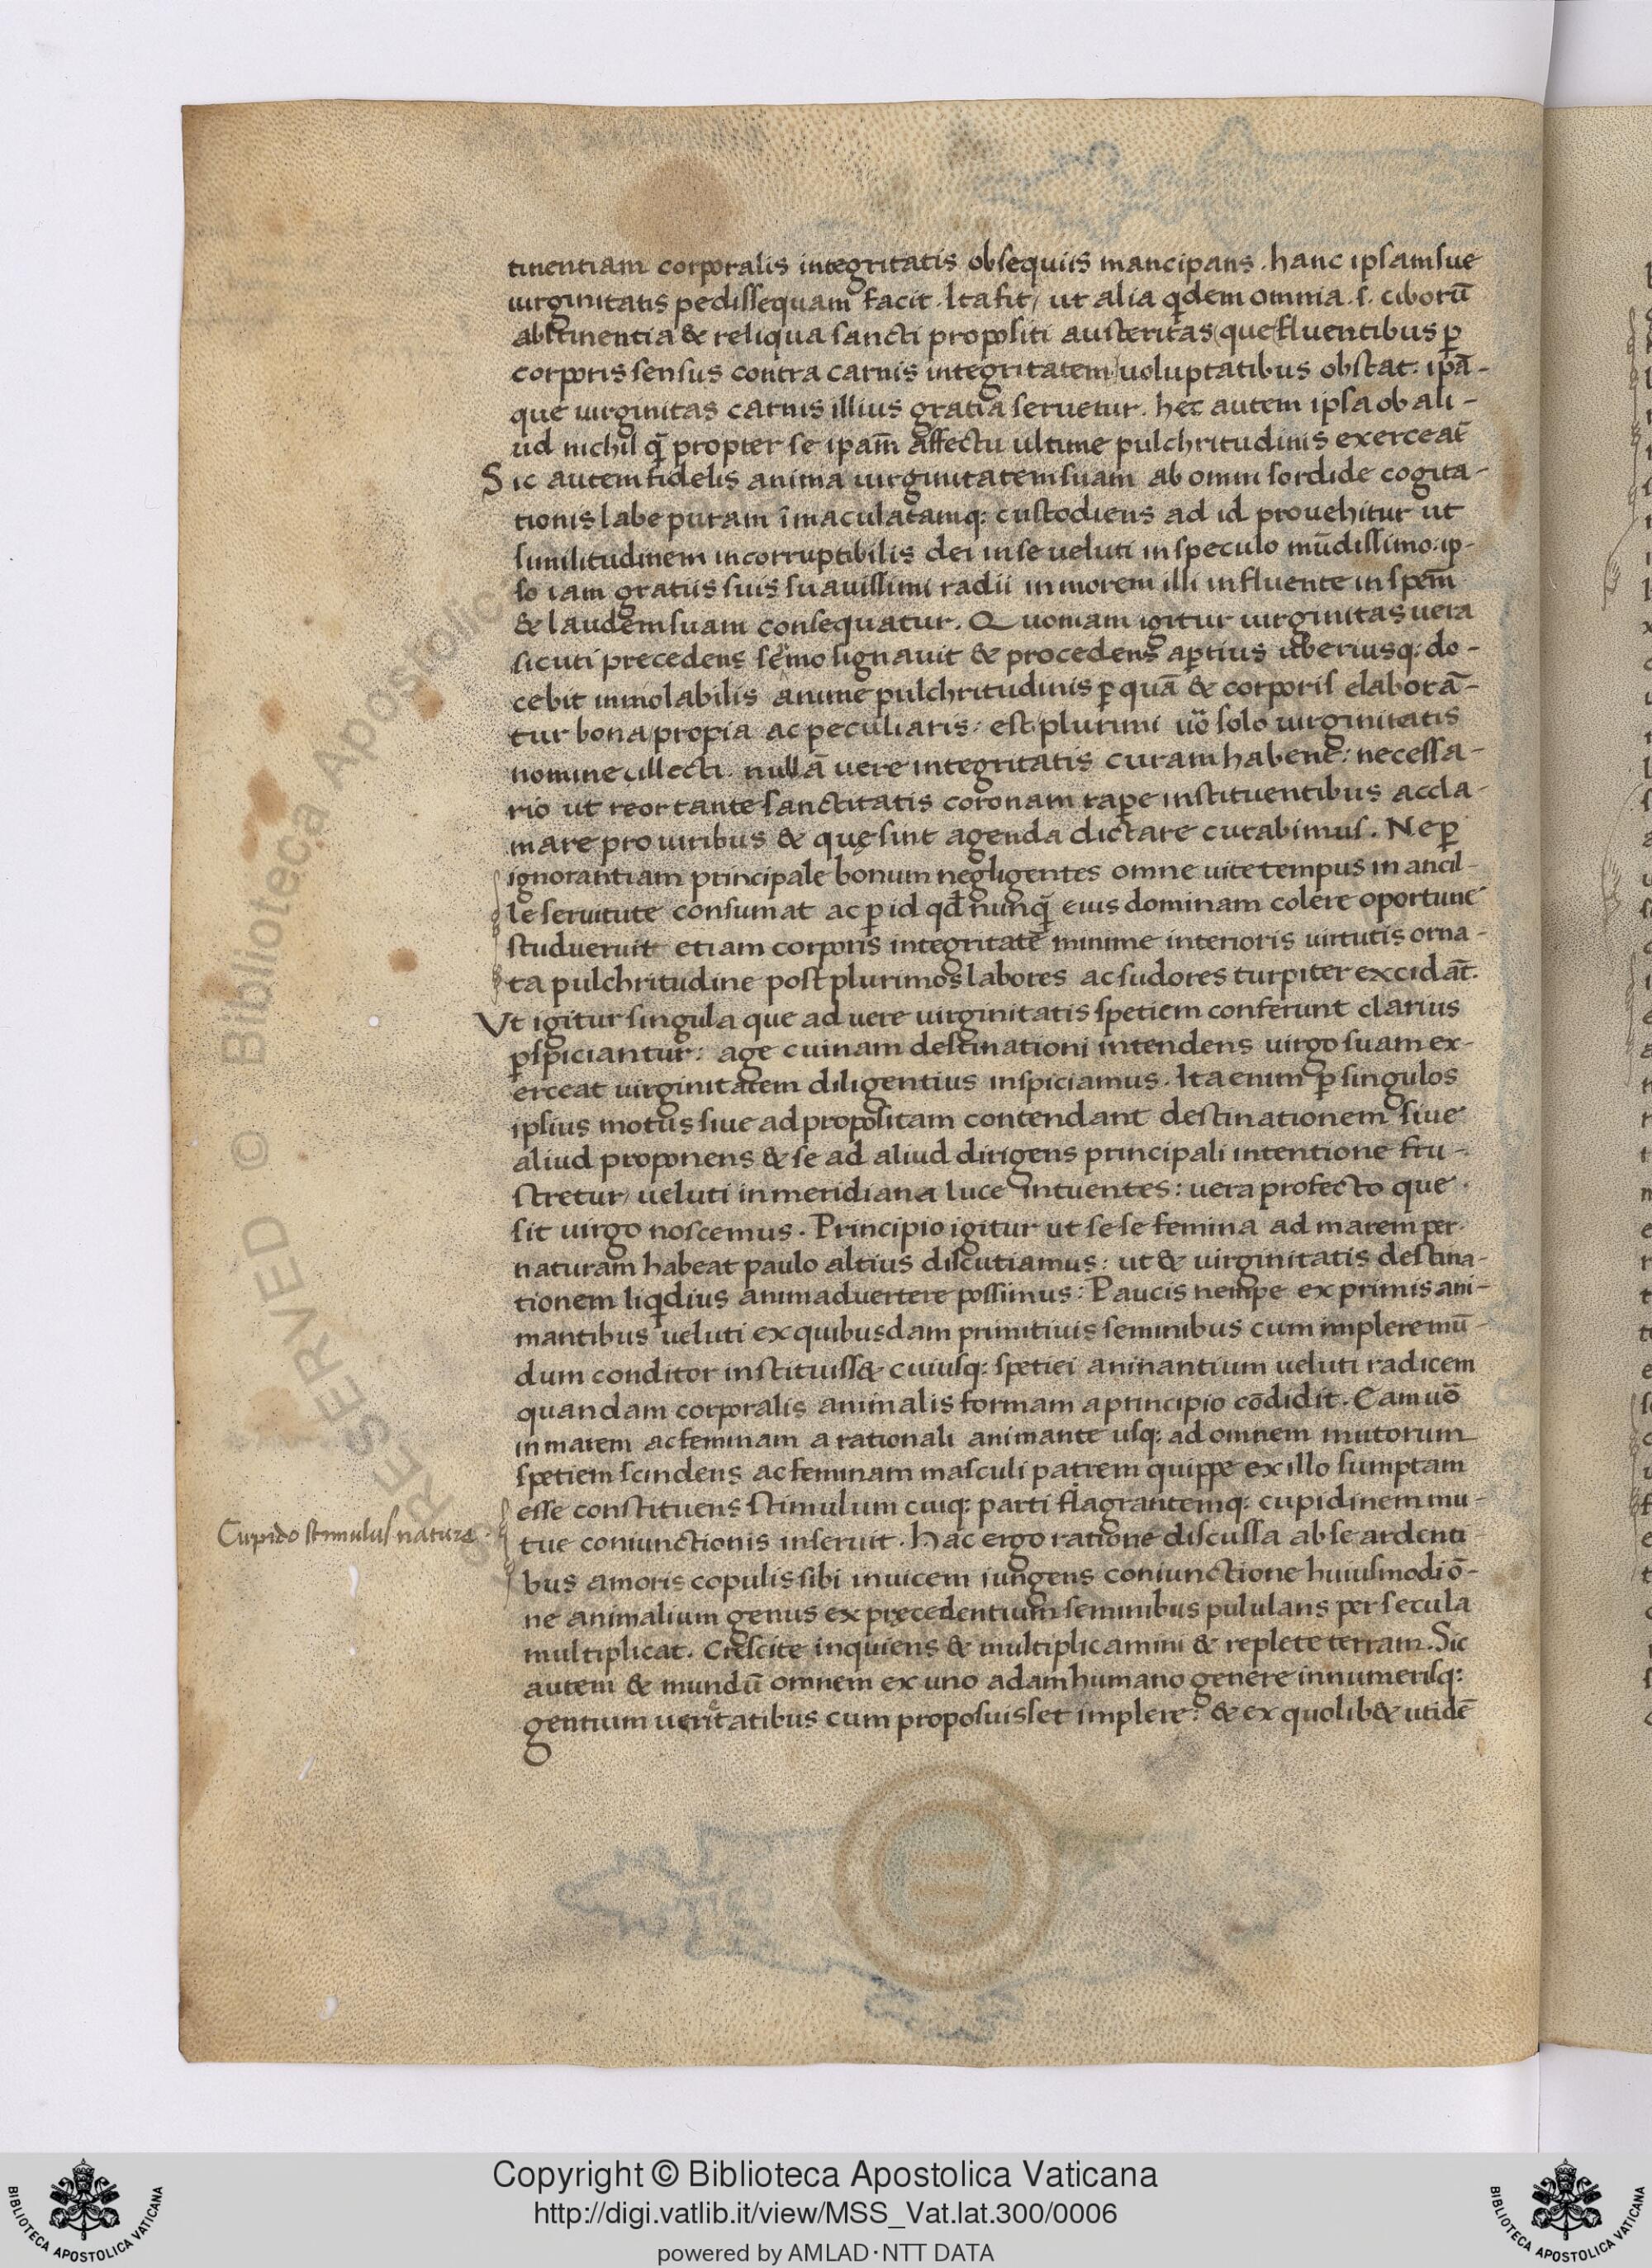 tinentiam corporalis integritatis obsequiis mancipans. hanc ipsam sue
uirginitatis pedissequam facit. Ita fit, ut alia qdem omnia .s. ciborū
abstinentia & reliqua sancti propositi austeritas que fluentibus ꝑ
corporis sensus contra carnis integritatem uoluptatibus obstat: ipā-
que uirginitas carnis illius gratia seruetur. hec autem ipsa ob ali-
ud nichil q̄ propter se ipam̄ affectu ultime pulchritudinis exerceat̄
Sic autem fidelis anima uirginitatem suam ab omni sordide cogita-
tionis labe puram īmaculatamq: custodiens ad id prouehitur ut
similitudinem incorruptibilis dei in se ueluti in speculo mūdissimo: ip-
so iam gratiis suis suauissimi radii in morem illi influente in spem̄
& laudem suam consequatur. Quoniam igitur uirginitas uera
sicuti precedens sermo signauit & procedens aꝑtius uberiusq: do-
cebit inuiolabilis anime pulchritudinis ꝑ quā & corporis elaborā-
tur bona propia ac peculiaris: est plurimi uō solo uirginitatis
nomine illecti nullā uere integritatis curam habent: necessa-
rio ut reor tante sanctitatis coronam raꝑe instituentibus accla-
mare pro uiribus & quę sint agenda dictare curabimus. Ne ꝑ
ignorantiam principale bonum negligentes omne uite tempus in ancil-
le seruitute consumat ac ꝑ id qđ nunq̄ eius dominam colere oportune
studuerunt etiam corporis integritatē minime interioris uirtutis orna-
ta pulchritudine post plurimos labores ac sudores turpiter excidāt.
Vt igitur singula que ad uere uirginitatis spetiem conferunt clarius
ꝑspiciantur: age cuinam destinationi intendens uirgo suam ex-
erceat uirginitatem diligentius inspiciamus. Ita enim ꝑ singulos
ipsius motus siue ad propositam contendant destinationem siue
aliud proponens & se ad aliud dirigens principali intentione fru-
stretur, ueluti in meridiana luce intuentes: uera profecto que
sit uirgo noscemus. Principio igitur ut se se femina ad marem per
naturam habeat paulo altius discutiamus: ut & uirginitatis destina-
tionem liqdius animaduertere possimus: Paucis nempe ex primis ani-
mantibus ueluti ex quibusdam primitiuis seminibus cum implere mū-
dum conditor instituiss& cuiusq: spetiei animantium ueluti radicem
quandam corporalis animalis formam a principio cōdidit. Eam uō
in marem ac feminam a rationali animante usq: ad omnem mutorum
spetiem scindens ac feminam masculi patrem quippe ex illo sumptam
esse constituens stimulum cuiq: parti flagrantemq: cupidinem mu-
Cupido stimulus naturę.
tue coniunctionis inseruit. Hac ergo ratione discussa ab se ardenti-
bus amoris copulis sibi inuicem iungens coniunctione huiusmodi ō-
ne animalium genus ex pręcedentium seminibus pululans per secula
multiplicat. Crescite inquiens & multiplicamini & replete terram. Sic
autem & mundū omnem ex uno adam humano genere innumerisq:
gentium ueritatibus cum proposuisset implere: & ex quolib& utidē
RESERVED © Biblioteca Apostolica
BIBLIOTECA APOSTOLICA VATICANA
Copyright © Biblioteca Apostolica Vaticana
http://digi.vatlib.it/view/MSS_Vat.lat.300/0006
powered by AMLAD·NTT DATA
BIBLIOTECA APOSTOLICA VATICANA